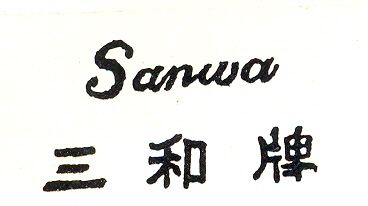 Sanwa
三和牌